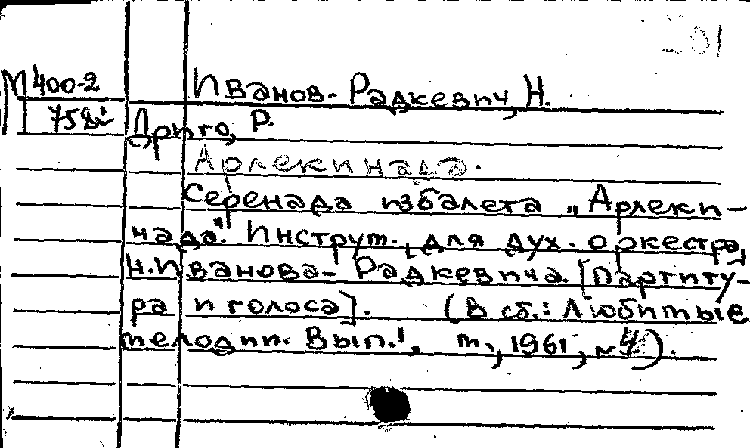 М 400-2 Иванов-Радкевич, Н.
Дриго, Р.
Арлекинада.
Серенада из балета „Арлеки-
нада". Инструм. для дух. оркестра
Н. Иванова-Радкевича. [Партиту-
ра и голоса]. (В сб.: Любимые
мелодии. Вып. 1, м., 1961, №4).